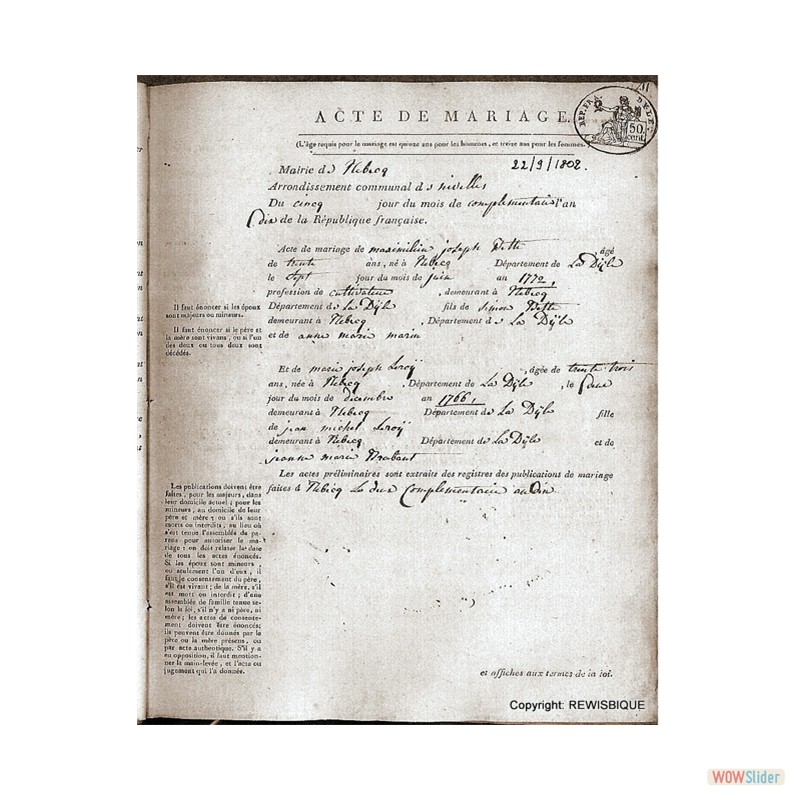 ACTE DE MARIAGE.
RÉP. FRA. DE LE
50.
cent.
(L'âge requis pour le mariage est quinze ans pour les hommes, et treize ans pour les femmes.)
22/9/1802.
Mairie de Rebecq
Arrondissement communal de nivelles
Du cincq jour du mois de complementair l'an
Dix de la République française.
Acte de mariage de maximilien joseph âgé
de trente ans, né à Rebecq Département de La Dÿle
le sept jour du mois de juin an 1772,
profession de cultivateur, demeurant à Rebecq
Département de La Dÿle fils de Simon
demeurant à Rebecq, Département de La Dÿle
et de anne marie marin
Et de marie joseph Leroÿ, âgée de trente trois
ans, née à Rebecq, Département de La Dÿle, le
jour du mois de decembre an 1766,
demeurant à Rebecq Département de La Dÿle fille
de jean michel Leroÿ
demeurant à Rebecq Département de La Dÿle et de
jeanne marie
Les actes préliminaires sont extraits des registres des publications de mariage
faites à Rebecq Le Complementair an Dix
et affiches aux termes de la loi.
Il faut énoncer si les époux
sont majeurs ou mineurs.
Il faut énoncer si le père et
la mère sont vivans, ou si l'un
des deux ou tous deux sont
décédés.
Les publications doivent être
faites, pour les majeurs, dans
leur domicile actuel; pour les
mineurs, au domicile de leur
père et mère; ou s'ils sont
morts ou interdits, au lieu où
s'est tenue l'assemblée de pa-
rens pour autoriser le ma-
riage: on doit relater la date
de tous les actes énoncés.
Si les époux sont mineurs,
ou seulement l'un d'eux, il
faut le consentement du père,
s'il est vivant; de la mère, s'il
est mort ou interdit; d'une
assemblée de famille tenue se-
lon la loi, s'il n'y a ni père, ni
mère; les actes de consente-
ment doivent être énoncés;
ils peuvent être donnés par le
père ou la mère présens, ou
par acte authentique. S'il y a
eu opposition, il faut mention-
ner la main-levée, et l'acte ou
jugement qui l'a donnée.
Copyright: REWISBIQUE
WOWSlider